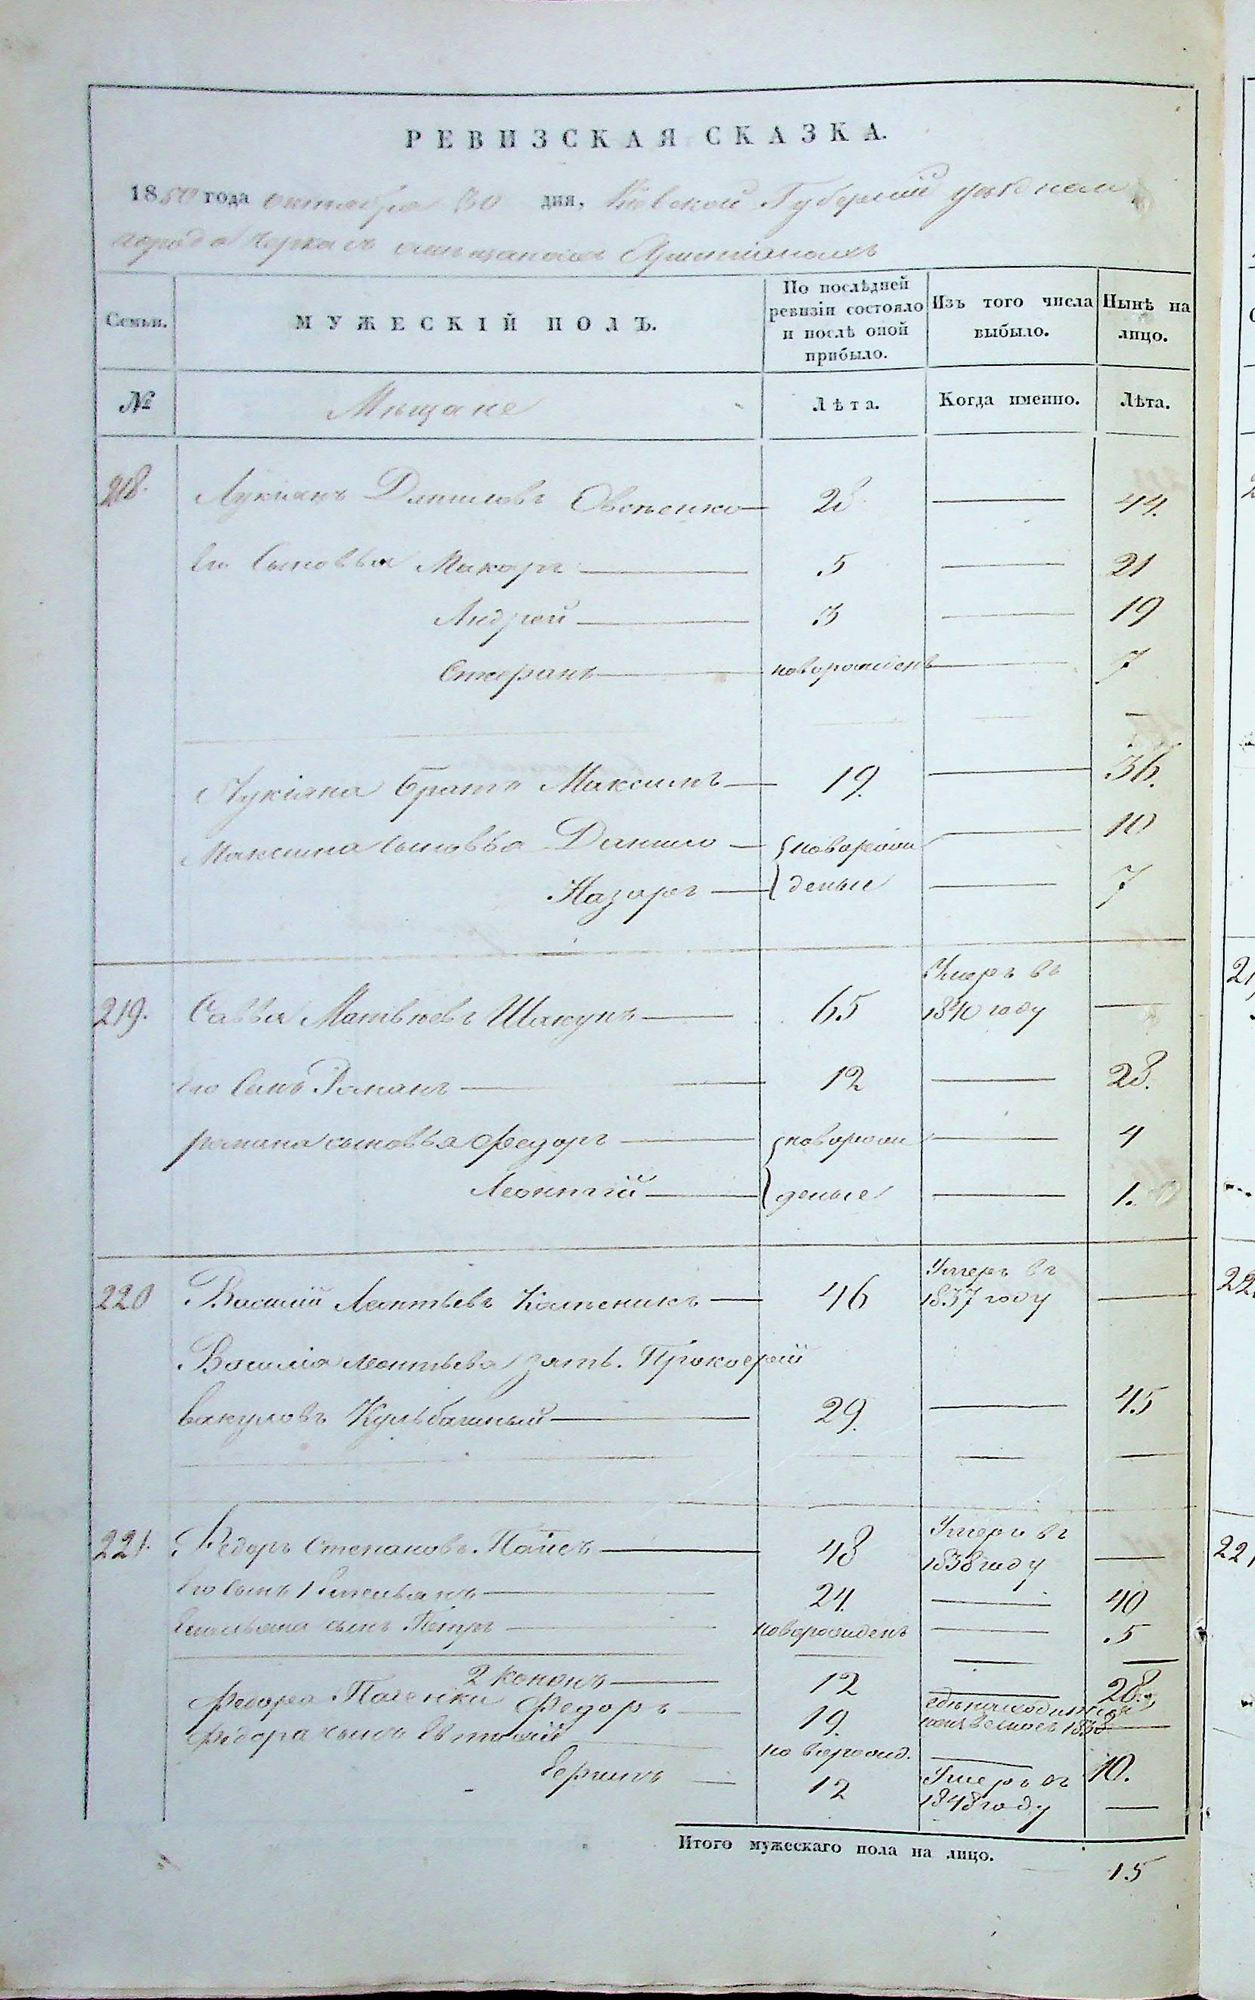 РЕВИЗСКАЯ СКАЗКА.
1850 года октября 30 дня, Киевской Губернии уезднаго
города Черкасъ о мещанахъ Христіанахъ
Семьи.
МУЖЕСКІЙ ПОЛЪ.
По послѣдней ревизіи состояло и послѣ оной прибыло.
Изъ того числа выбыло.
Нынѣ на лицо.
№
Мещане
Лѣта.
Когда именно.
Лѣта.
218. Лукіянъ Даниловъ Овсѣенко 28. 44.
Его Сыновья Макаръ 5 21
Андрей 3 19
Стефанъ новорожденъ 7
Лукіяна братъ Максимъ 19. 36.
Максима сыновья Данило новорож 10
Назаръ деные 7
219. Савва Матвѣевъ Шакунъ 65 Умеръ въ 1840 году
Его Сынъ Романъ 12 28.
Романа сыновья Федоръ новорож 4
Леонтій деные 1.
220 Василій Леонтьевъ 46 Умеръ въ 1837 году
Василія Леонтьева зять Прокофій
Вакуловъ Кульбашный 29. 45
221. Федоръ Степановъ 48 Умеръ въ 1838 году
Его Сынъ Емельянъ 24. 40
Емельяна сынъ Петръ новорожденъ 5
2 Кононъ 12 28.
Федора Федоръ 19. где находится неизвестно съ 1838
Федора сынъ Евтихій новорожд. 10.
12 Умеръ въ 1848 году
Итого мужескаго пола на лицо. 15